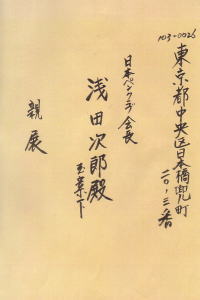 103-0026
東京都中央区日本橋兜町
二〇ノ三番
日本ペンクラブ会長
浅田次郎殿
玉案下
親展